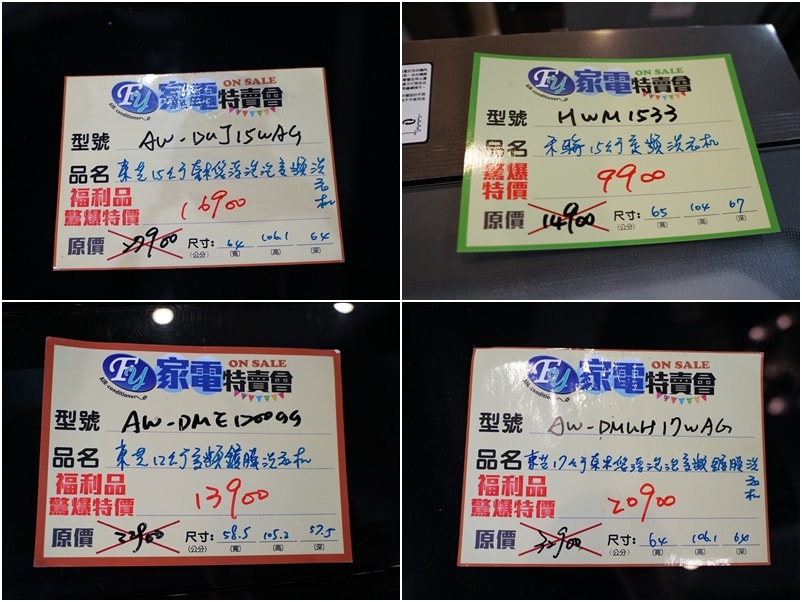 Fu 家電 ON SALE 特賣會
Air conditioner
型號 AW-DUJ15WAG
品名 東芝15公斤奈米悠浮泡泡變頻洗衣机
福利品
驚爆特價 16900
原價 27900 尺寸: 64 106.1 64
(公分) (寬) (高) (深)
Fu 家電 ON SALE 特賣會
Air conditioner
型號 HWM1533
品名 禾聯15公斤變頻洗衣机
驚爆
特價 9900
原價 14900 尺寸: 65 104 67
(公分) (寬) (高) (深)
Fu 家電 ON SALE 特賣會
Air conditioner
型號 AW-DME1200GG
品名 東芝12公斤變頻鍍膜洗衣机
福利品
驚爆特價 13900
原價 22900 尺寸: 58.5 105.2 57.5
(公分) (寬) (高) (深)
Fu 家電 ON SALE 特賣會
Air conditioner
型號 AW-DMUH17WAG
品名 東芝17公斤奈米悠浮泡泡變頻鍍膜洗衣机
福利品
驚爆特價 20900
原價 32900 尺寸: 64 106.1 64
(公分) (寬) (高) (深)